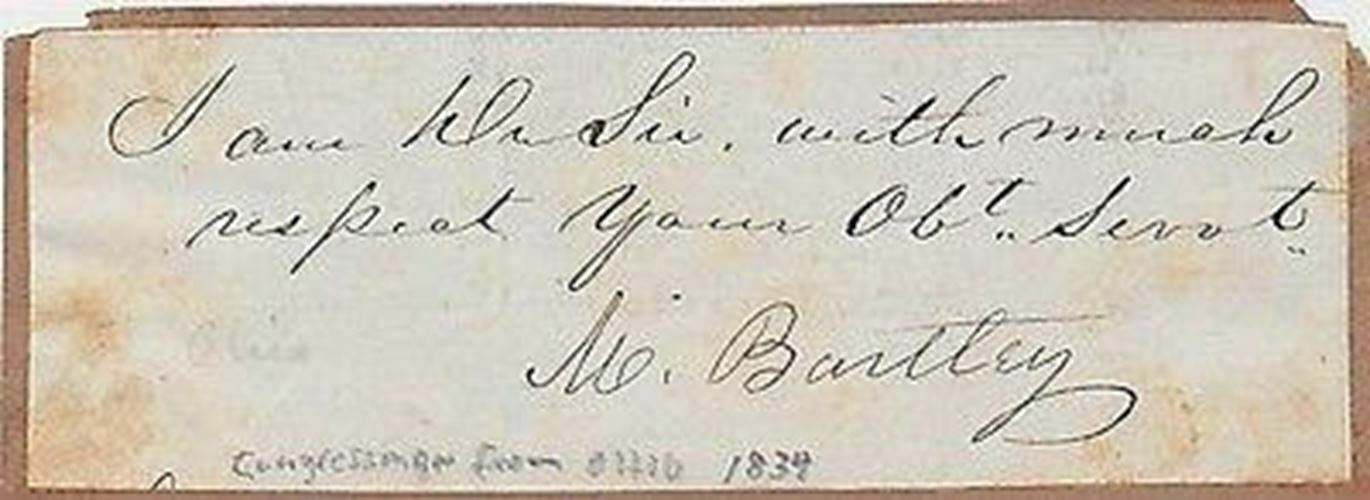 I am Dr Sir, with much
respect Your Obt. Servt.
M. Bartley
Ohio
Congressman from Ohio 1834